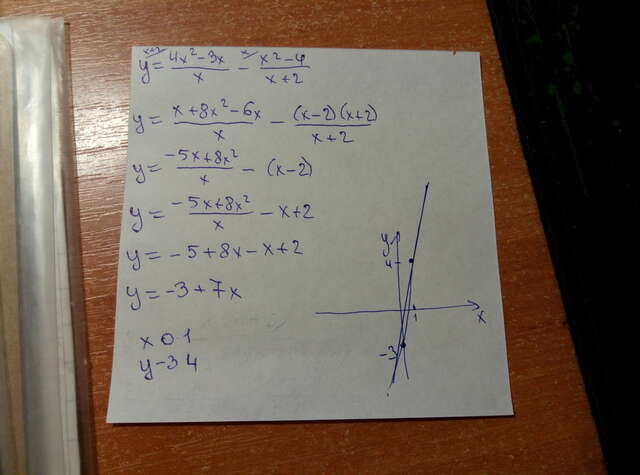 y = (4x² - 3x)/x - (x² - 4)/(x + 2)
y = (x + 8x² - 6x)/x - ((x - 2)(x + 2))/(x + 2)
y = (-5x + 8x²)/x - (x - 2)
y = (-5x + 8x²)/x - x + 2
y = -5 + 8x - x + 2
y = -3 + 7x
x 0 1
y -3 4
y
4
1
x
-3